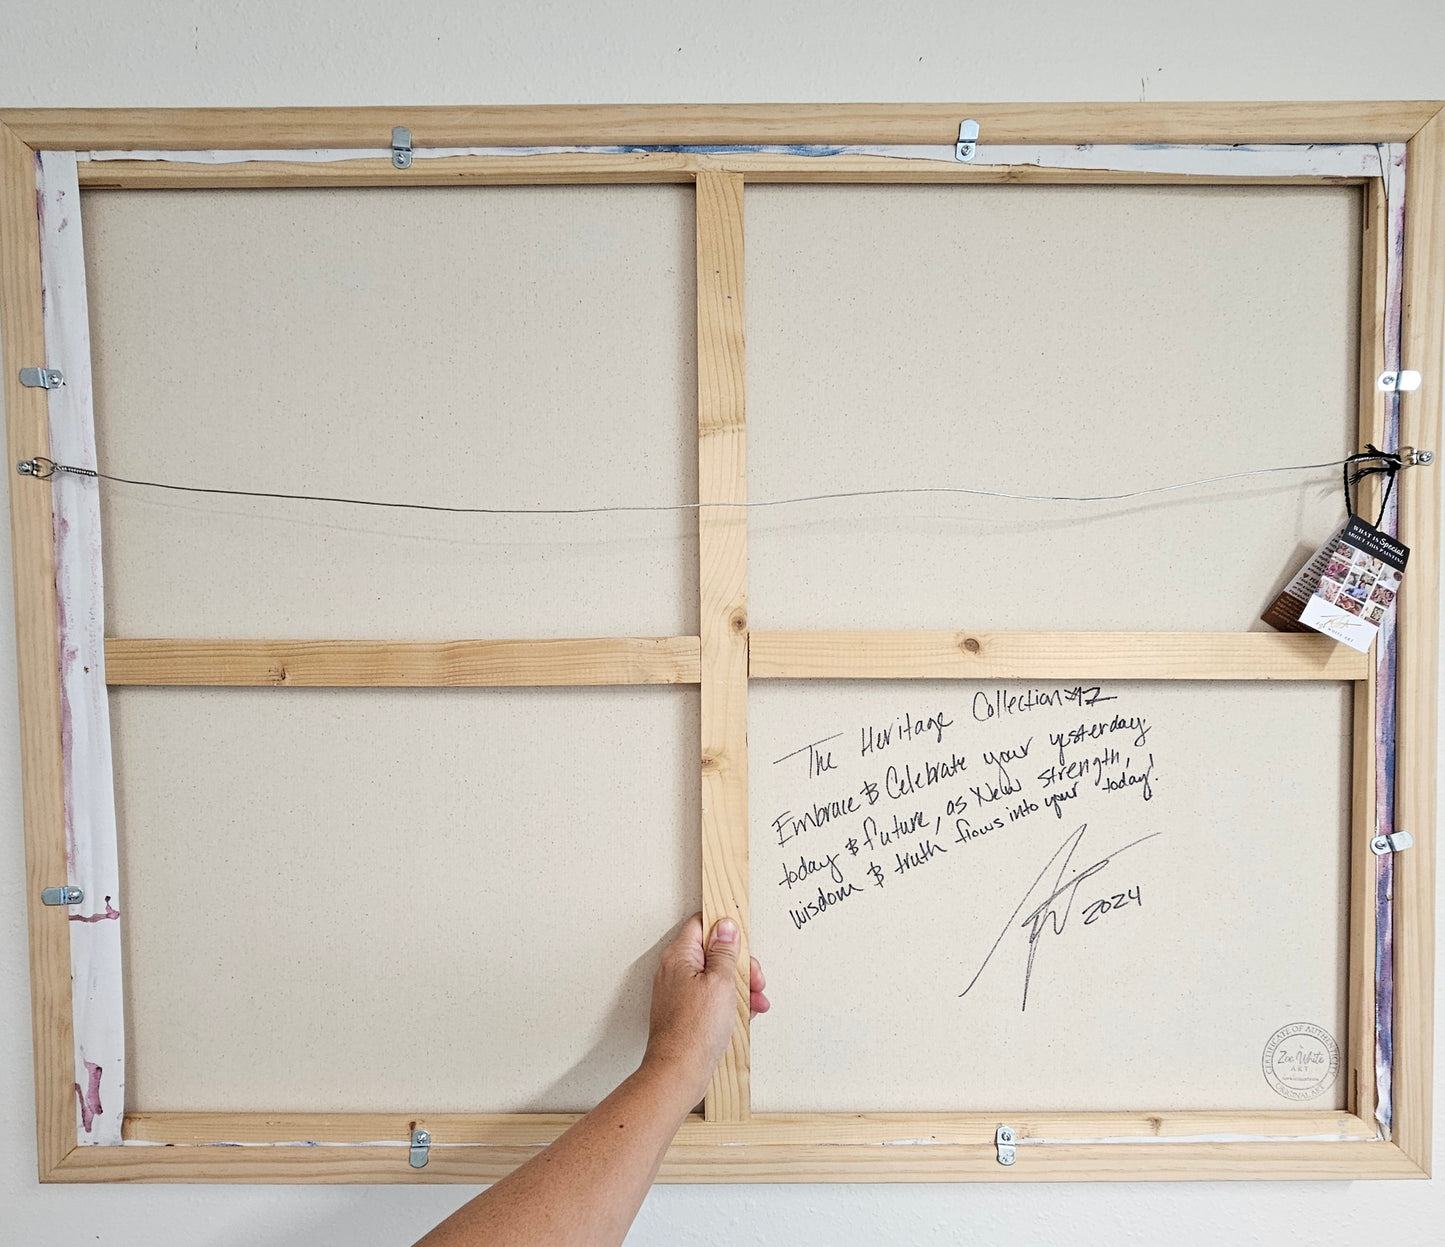 WHAT IS Special
ABOUT THIS PAINTING
ZOE WHITE ART
The Heritage Collection #12
Embrace & Celebrate your yesterday,
today & future, as New strength,
wisdom & truth flows into your today!
2024
CERTIFICATE OF AUTHENTICITY
Zoe White
ART
ORIGINAL ART